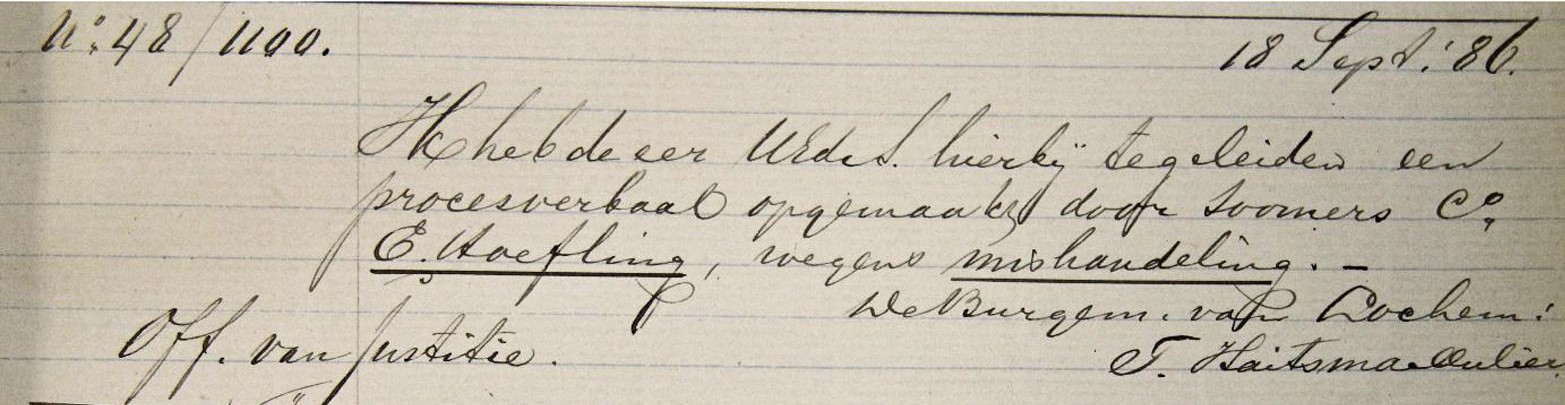 No: 48/1100.
18 Sept: '86.
Ik heb de eer UEd. S. hierbij te geleiden een
procesverbaal opgemaakt door Soomers Co,
E. Hoefling, wegens mishandeling. —
De Burgem. van Lochem:
Off. van Justitie.
T. Haitsma Mulier.